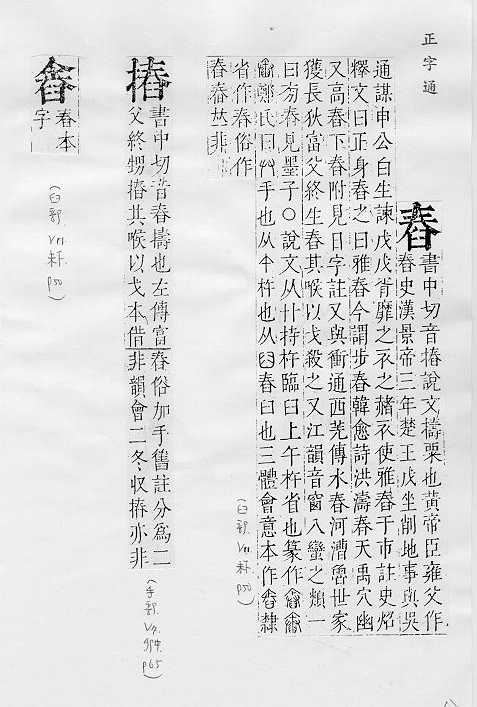 正字通
舂
書中切音摏說文擣粟也黃帝臣雍父作
舂史漢景帝三年楚王戊坐削地事與吳
通謀申公白生諫戊戊胥靡之衣之赭衣使雅舂于市註史炤
釋文曰正身舂之曰雅舂今謂步舂韓愈詩洪濤舂天禹穴幽
又高舂下舂附見日字註又與衝通西羌傳水舂河漕魯世家
獲長狄富父終生舂其喉以戈殺之又江韻音窗八蠻之類一
曰旁舂見墨子○說文从廾持杵臨臼上午杵省也篆作
鄭氏曰 手也从午杵也从臼舂臼也三體會意本作 隸
省作舂俗作
並非
(臼部 p50)
摏
書中切音舂擣也左傳富
父終甥摏其喉以戈本借
舂俗加手舊註分為二
非韻會二冬収摏亦非
(手部 p65)
舂本
字
(臼部 p50)